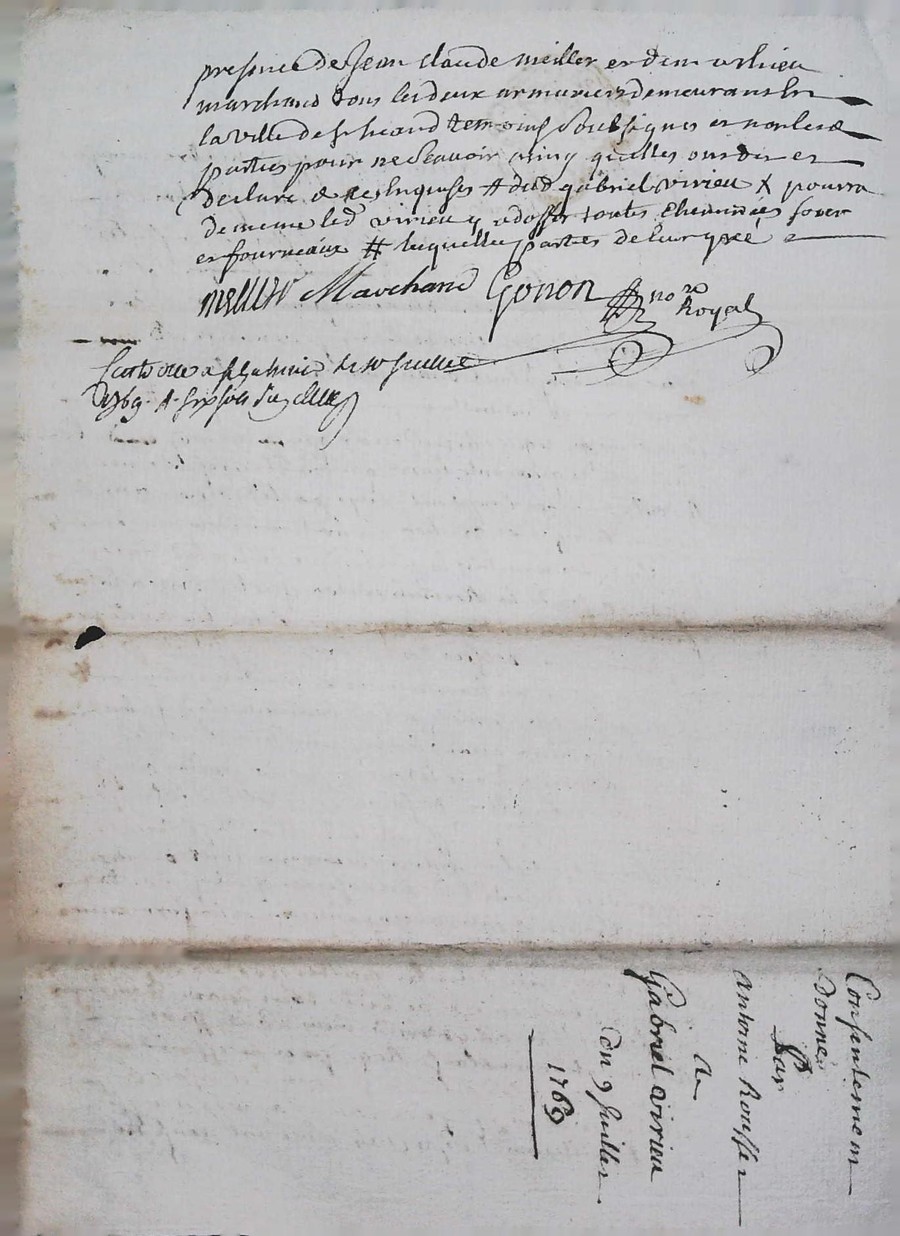 presence de Jean Claude meiller et dem athieu
marchand tous les deux armuriers demeurans en
la ville de st heand temoins soussignes et non les d
parties pour ne scavoir ainsy quelles ont dit et
declaré de ce enquises # dud gabriel virieu X pourra
de meme led virieu y adosser toutes cheminées foyer
et fourneaux # lesquelles parties de leur gré
meiller Marchand Gonon no re
Royal
a st heand le 10 juillet
1769. R. six sols six
Consentement
donné
Par
antoine Rousset
a
Gabriel virieu
du 9 Juillet
1769